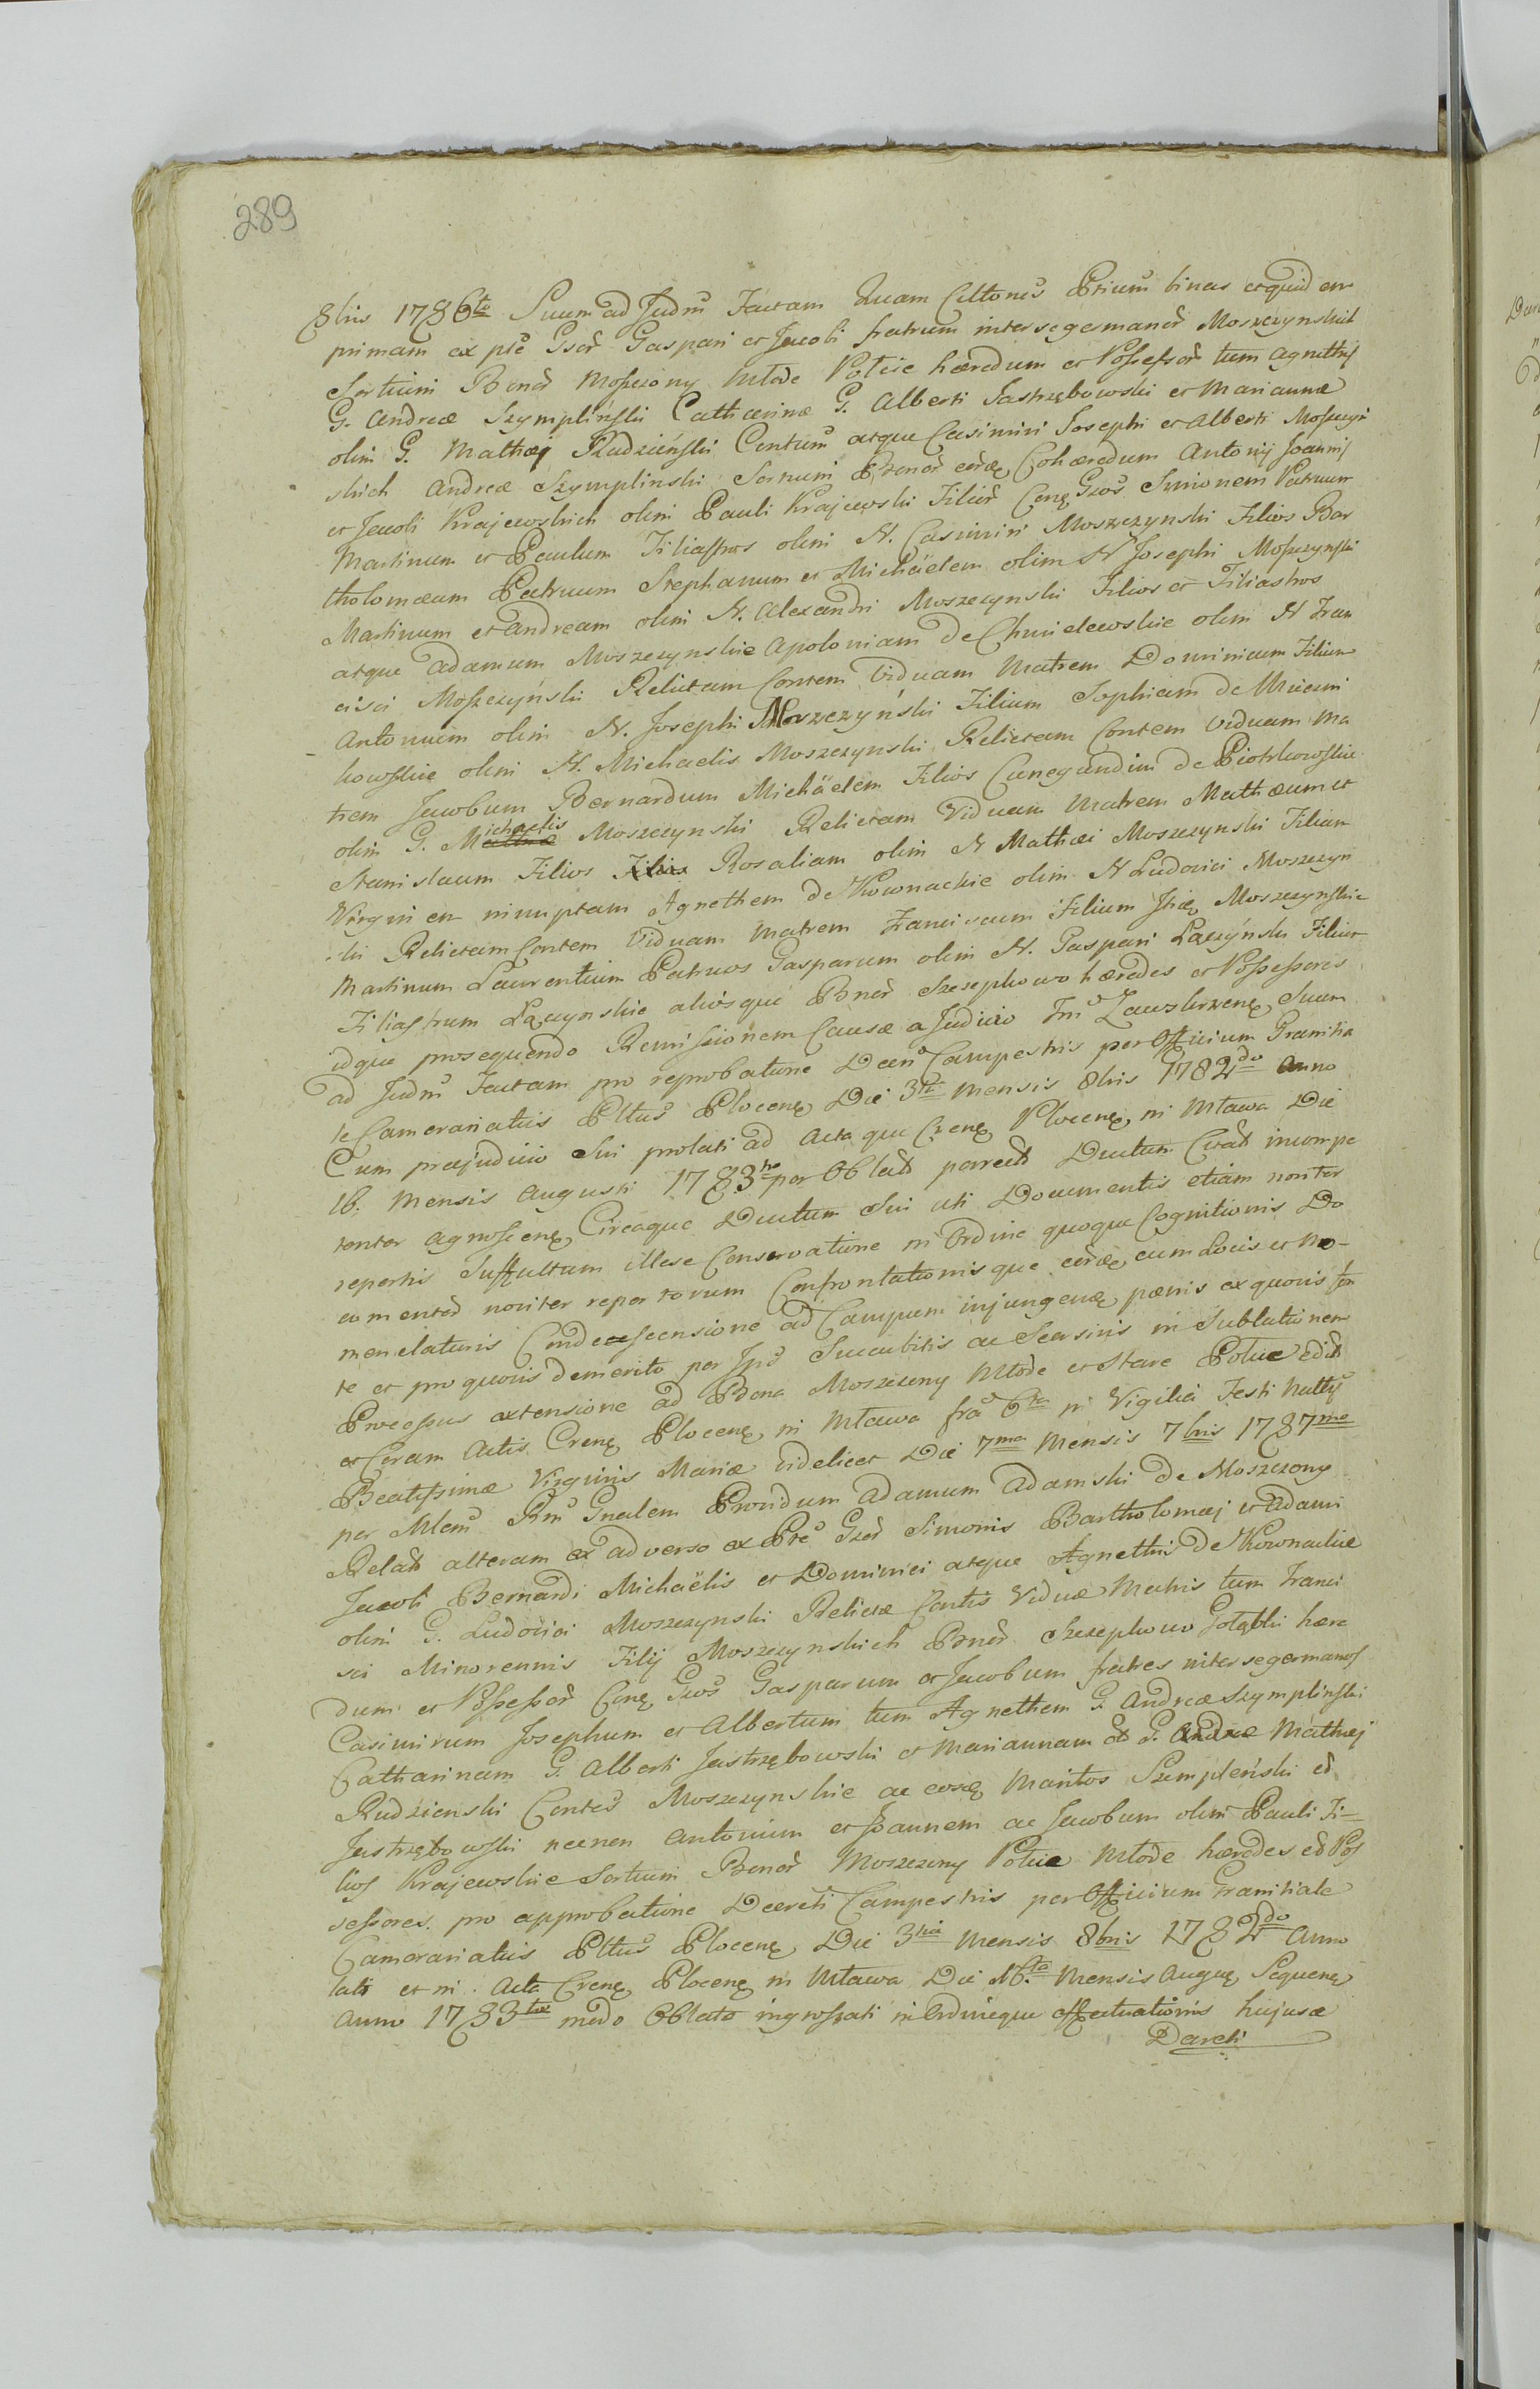 289
8bris 1786to Suum ad Judm Factam Quam Cittonis Ptium binas et quidem
primam ex pte Gsor Gaspari et Jacobi fratrum inter se germanor Moszczynskich
Sortium Bonor Moszczony Młode Potūie hæredum et Possessor tum Agnethis
G. Andreæ Szymplinski Catharinæ G. Alberti Jastrzębowski et Mariannæ
olim G. Mathæi Rudzieński Contum atque Casimiri Josephi et Alberti Moszczyń
skich Andreæ Szymplinski Sortium Bonor eorq Cohæredum Antonij Joannis
et Jacobi Krajewskich olim Pauli Krajewski Filior Conq Gsos Simonem Patruum
Martinum et Paulum Filiastros olim N. Casimiri Moszczynski Filios Bar
tholomæum Patruum Stephanum et Michäelem olim N Josephi Moszczynski
Martinum et Andream olim N. Alexandri Moszczynski Filios et Filiastros
atque Adamum Moszczynskie Apoloniam de Chmielewskie olim N Fran
cisci Moszczyński Relictam Contem Viduam Matrem Dominicum Filium
Antonium olim N. Josephi Moszczyński Filium Sophiam de Mieczni
kowskie olim N. Michaelis Moszczynski Relictam Contem Viduam Ma
trem Jacobum Bernardum Michäelem Filios Cunegundim de Piotrkowskie
olim G. Michaelis Moszczynski Relictam Viduam Matrem Mathæum et
Stanislaum Filios Filios Rosaliam olim N Mathæi Moszczynski Filiam
Virginem innuptam Agnethem de Kownackie olim N Ludovici Moszczyn
ski Relictam Contem Viduam Matrem Franciscum Filium Itiq Moszczynskie
Martinum Laurentium Patruos Gasparum olim N. Gaspari Łączyński Filium
Filiastrum Łączynskie aliosque Bonor Szczepkowo hæredes et Possessores
idque prosequendo Remissionem Causæ a Judicio Tni Zawskrzenq Suum
ad Judm Factam pro reprobatione Decri Campestris per Officium Granitia
le Camerariatus Pltus Plocenq Die 3tia Mensis 8bris 1782do Anno
Cum præjudicio Sui prolati ad Acta que Crenq Plocenq in Mława Die
16. Mensis Augusti 1783tio per Oblat porrect Ductum Coat incompe
tenter agnoscenq Circaque Ductum Sui uti Documentis etiam noviter
repertis Suffultum illæse Conservatione in Ordine quoque Cognitionis Do
cumentor noviter repertorum Confrontationisque eorq cum Locis et No-
menclaturis Condescensione ad Campum injungenq pænis ex quovis fon
te et pro quovis demerito per Ipos Succubitis ac Scarsivis in Sublationem
Processus extensione ad Bona Moszczony Młode et Stare Potuie edit
et Coram Actis Crenq Plocenq in Mława fra 6ta in Vigilia Festi Nattis
Beatissimæ Virginis Mariæ videlicet Die 7ma Mensis 7bris 1787mo
per Mlem Rni Gnalem Providum Adamum Adamski de Moszczony
Relat alteram ex adverso ex Pte Gsor Simonis Bartholomæj et Adami
Jacobi Bernardi Michaëlis et Dominici atque Agnethis de Kownackie
olim G. Ludovici Moszczynski Relictæ Contis Viduæ Matris tum Franci
sci Minorennis Filij Moszczynskich Bonor Szczepkowo Gołąbki hære
dum et Possessor Conq Gsos Gasparum et Jacobum fratres inter se germanos
Casimirum Josephum et Albertum tum Agnethem G. Andreæ Szymplinski
Catharinam G. Alberti Jastrzębowski et Mariannam G. Mathæj
Rudzienski Contes Moszczynskie ac eosq Maritos Szempleński et
Jastrzębowski necnon Antonium et Joannem ac Jacobum olim Pauli Fi-
lios Krajewskie Sortium Bonor Moszczony Potuie Młode hæredes et Pos
sessores. pro approbatione Decreti Campestris per Officium Granitiale
Camerariatus Pltus Plocenq Die 3tia Mensis 8bris 1782do Anno
lati et in Acta Crenq Plocenq in Mława Die 16ta Mensis Augq Sequenq
Anno 1783tio modo Oblatæ ingrossati in Ordineque effectuationis hujusce
Dareti